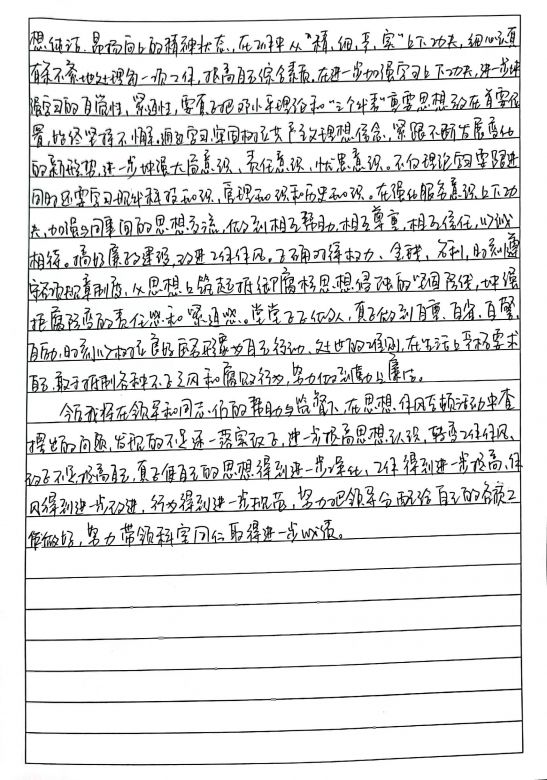 想纯洁、昂扬向上的精神状态,在工作中从“精、细、严、实”上下功夫,细心负
有条不紊地处理每一项工作,提高自己综合素质。在进一步加强学习上下功夫,进一步增
强学习的自觉性,紧迫性,要真正把邓小平理论和“三个代表”重要思想放在首要位
置,始终坚持不懈,通过学习,牢固树立共产主义理想信念,紧跟不断发展变化
的新形势,进一步增强大局意识、责任意识、忧患意识。不仅理论学习要跟进
同时还要学习现代科技知识,管理知识和历史知识。在强化服务意识上下功
夫,加强与同事间的思想交流,做到相互帮助,相互尊重,相互信任,以诚
相待。搞好廉政建设,改进工作作风。正确对待权力、金钱、名利,时刻遵
守各项规章制度,从思想上筑起抵御腐朽思想侵蚀的牢固防线,增强
拒腐防变的责任感和紧迫感。堂堂正正做人,真正做到自重、自省、自警、
自励,时刻以树立良好医务形象为自己行动、处世的准则,在生活上严格要求
自己,敢于抵制各种不正之风和腐败行为,努力做到勤政廉洁。
今后我将在领导和同志们的帮助与监督下,在思想、作风专项活动中查
摆出的问题,发现的不足逐一落实改正,进一步提高思想认识,转变工作作风、
改正不足提高自己,真正使自己的思想得到进一步深化,工作得到进一步提高,作
风得到进一步改进,行为得到进一步规范,努力把领导分配给自己的各项工
作做好,努力带领科室同仁取得进一步成绩。